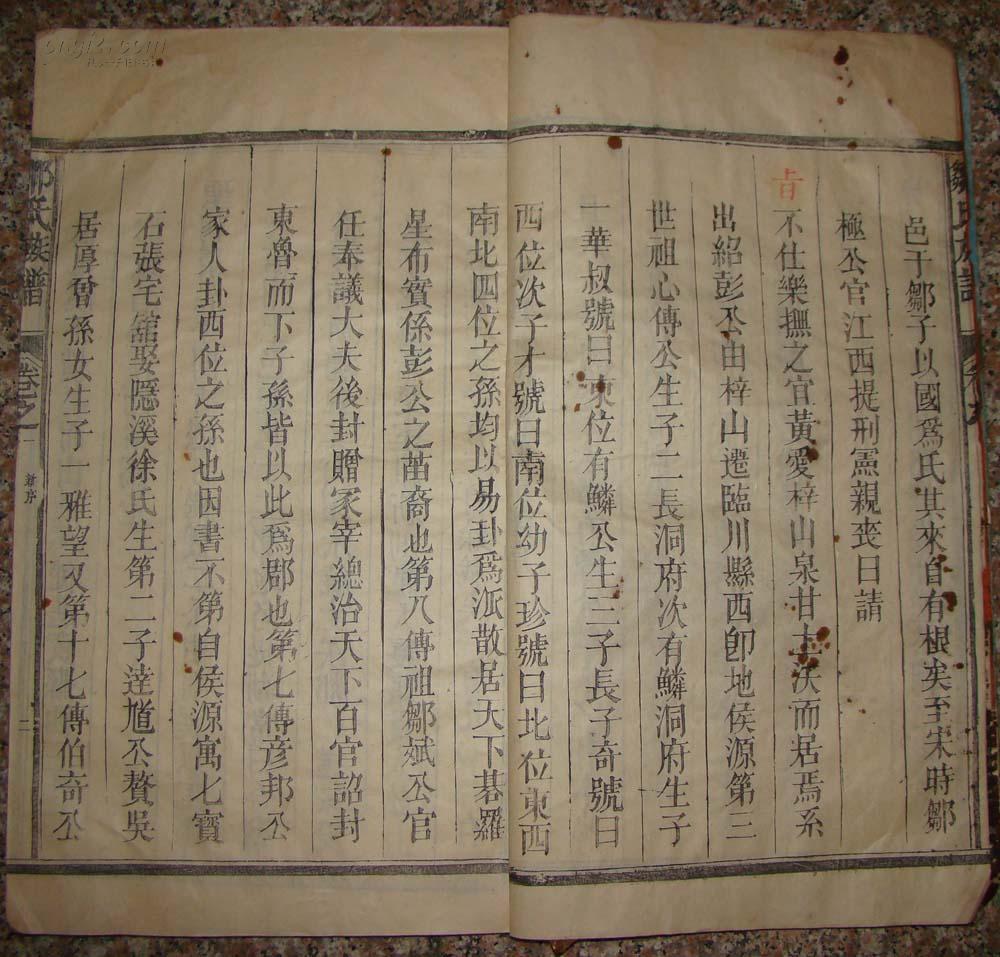 鄒氏族譜
卷之
邑于鄒子以國爲氏其來自有根矣至宋時鄒
極公官江西提刑憲親喪日請
旨
不仕樂撫之官黃愛梓山泉甘土沃而居焉系
出紹彭公由梓山遷臨川縣西卽地侯源第三
世祖心傳公生子二長洞府次有鱗洞府生子
一華叔號曰東位有鱗公生三子長子奇號曰
西位次子才號曰南位幼子珍號曰北位東西
南北四位之孫均以易卦爲派散居天下碁羅
星布實係彭公之苗裔也第八傳祖鄒斌公官
任奉議大夫後封贈冢宰總治天下百官詔封
東魯而下子孫皆以此爲郡也第七傳彥邦公
家人卦西位之孫也因書不第自侯源寓七寶
石張宅舘娶隱溪徐氏生第二子達馗公贅吳
居厚曾孫女生子一雅望又第十七傳伯奇公
鄒氏族譜
卷之一
新序
二